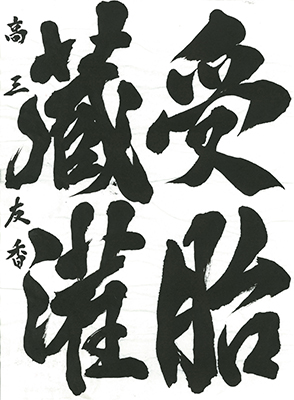 受胎
藏灌
高三友香